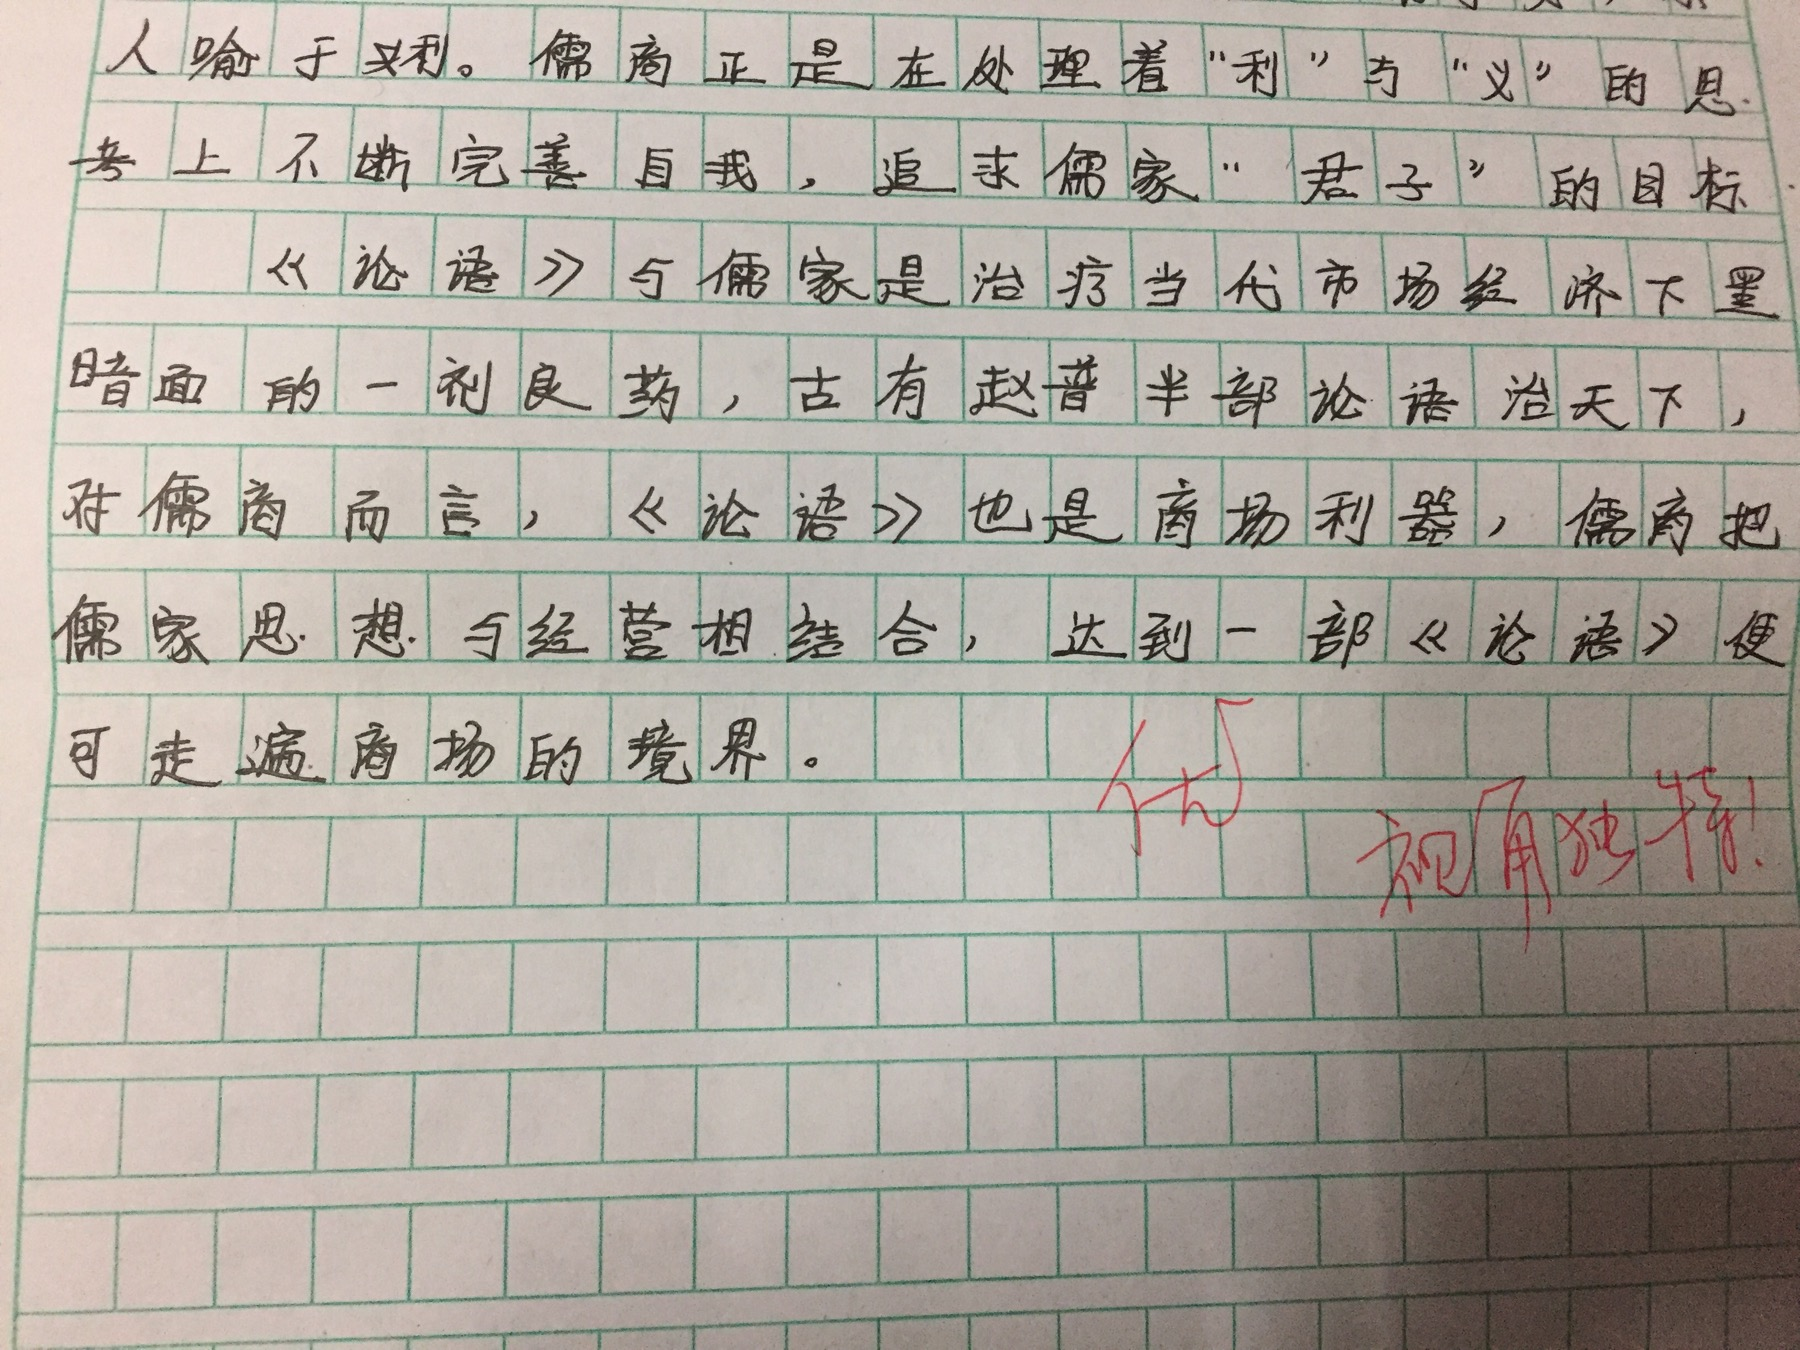 人喻于利。儒商正是在处理着“利”与“义”的思
考上不断完善自我，追求儒家“君子”的目标
《论语》与儒家是治疗当代市场经济下黑
暗面的一剂良药，古有赵普半部论语治天下，
对儒商而言，《论语》也是商场利器，儒商把
儒家思想与经营相结合，达到一部《论语》便
可走遍商场的境界。
优
视角独特！